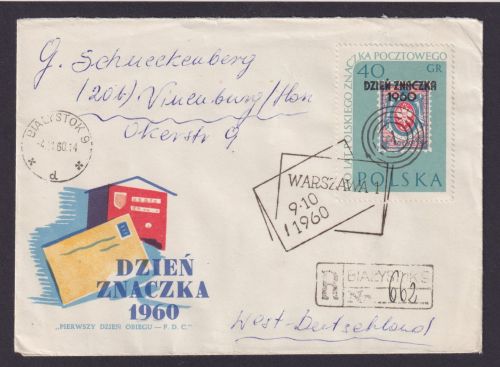 G. Schneckenberg
(20b) Vienenburg/Han
Okerstr 9
100 LAT POLSKIEGO ZNACZKA POCZTOWEGO
40 GR
DZIEŃ ZNACZKA
1960
POLSKA
BIAŁYSTOK 9
60.14
d
WARSZAWA 1
9.10
1960
DZIEŃ
ZNACZKA
1960
„PIERWSZY DZIEŃ OBIEGU — F. D. C."
R
BIAŁYSTOK 9
Nr 662
West-Deutschland